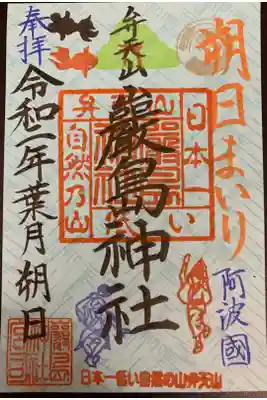 朔日まいり
阿波國
弁天山
嚴島神社
奉拝
令和二年葉月朔日
日本一
自然乃山
日本一低い自然の山弁天山